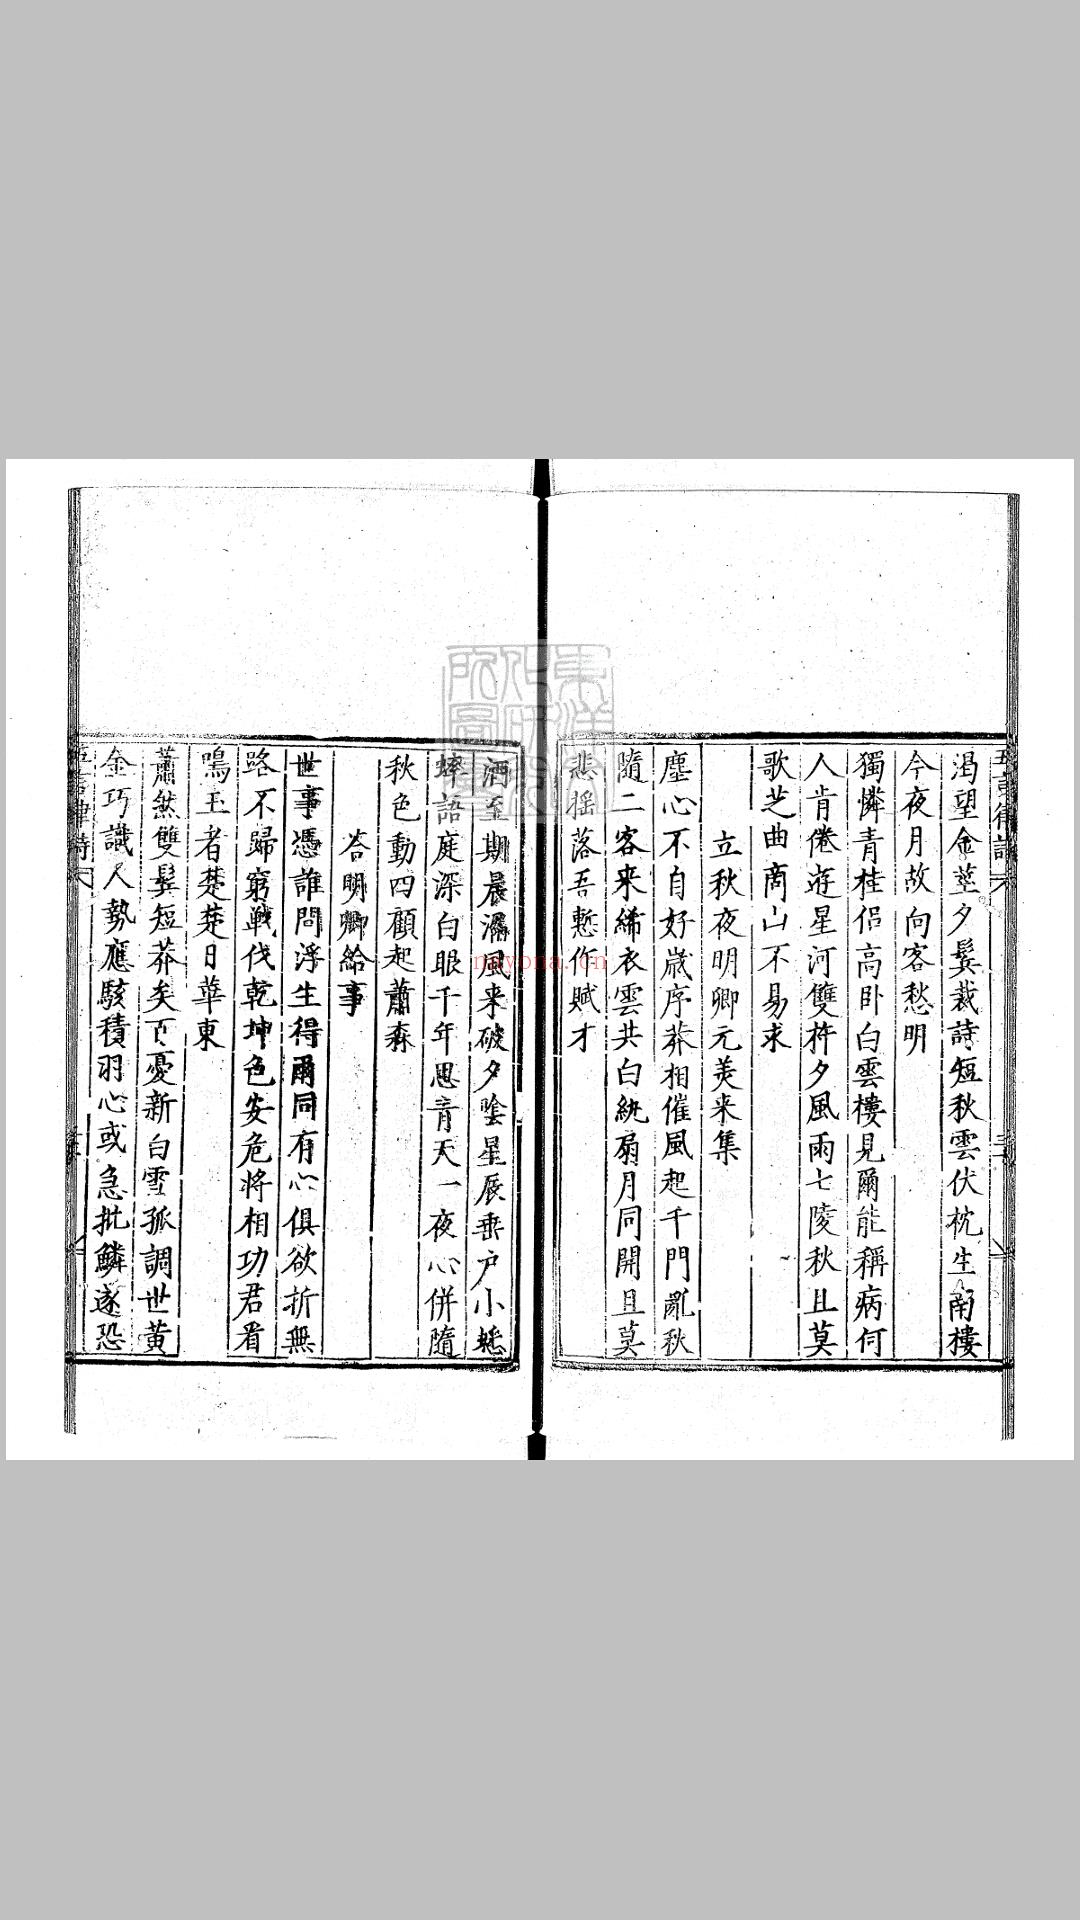 渴望金莖夕鬢裁詩短秋雲伏枕生南樓
今夜月故向客愁明
獨憐青桂侶高卧白雲樓見爾能稱病何
人肯倦遊星河雙杵夕風雨七陵秋且莫
歌芝曲商山不易求
立秋夜明卿元美来集
塵心不自好歲序莽相催風起千門亂秋
隨二客来絺衣雲共白紈扇月同開且莫
悲摇落吾慙作賦才
酒至期晨瀰風来破夕陰星辰垂户小蟋
蟀語庭深白眼千年思青天一夜心併隨
秋色動四顧起蕭森
荅明卿給事
世事憑誰問浮生得爾同有心俱欲折無
路不歸窮戰伐乾坤色安危將相功君看
鳴玉者楚楚日華東
蕭然雙鬂短莽矣百憂新白雪孤調世黄
金巧識人勢應駭積羽心或急批鱗遂恐
五言律詩
mayona.cn